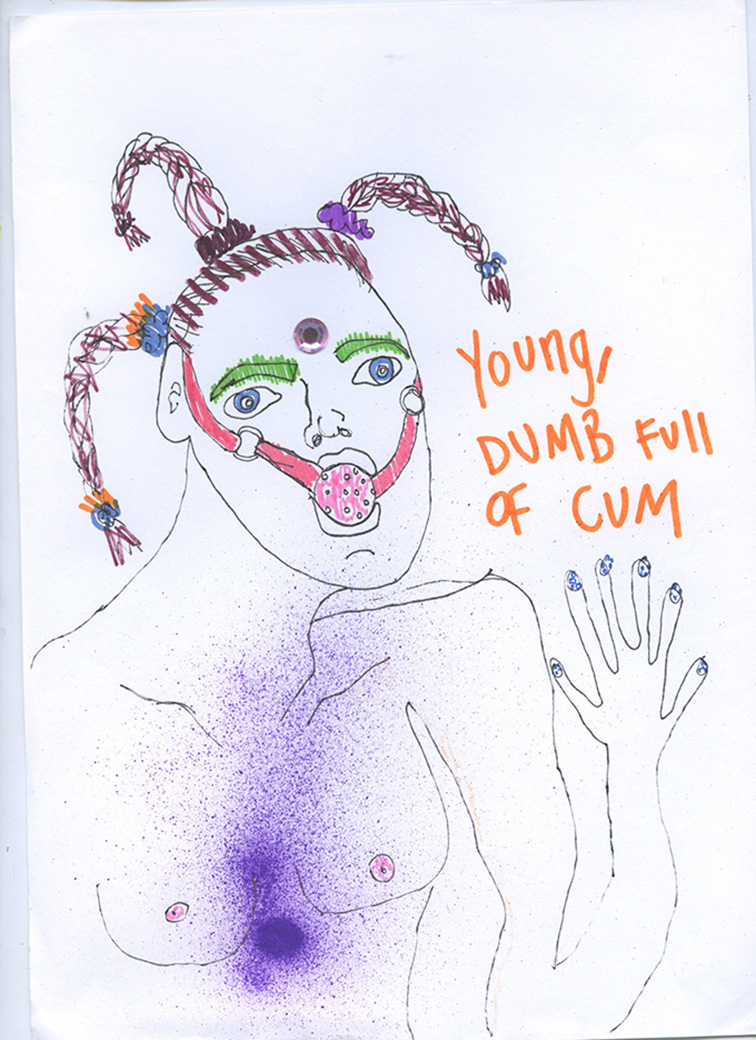 Young,
DUMB FUll
OF CUM